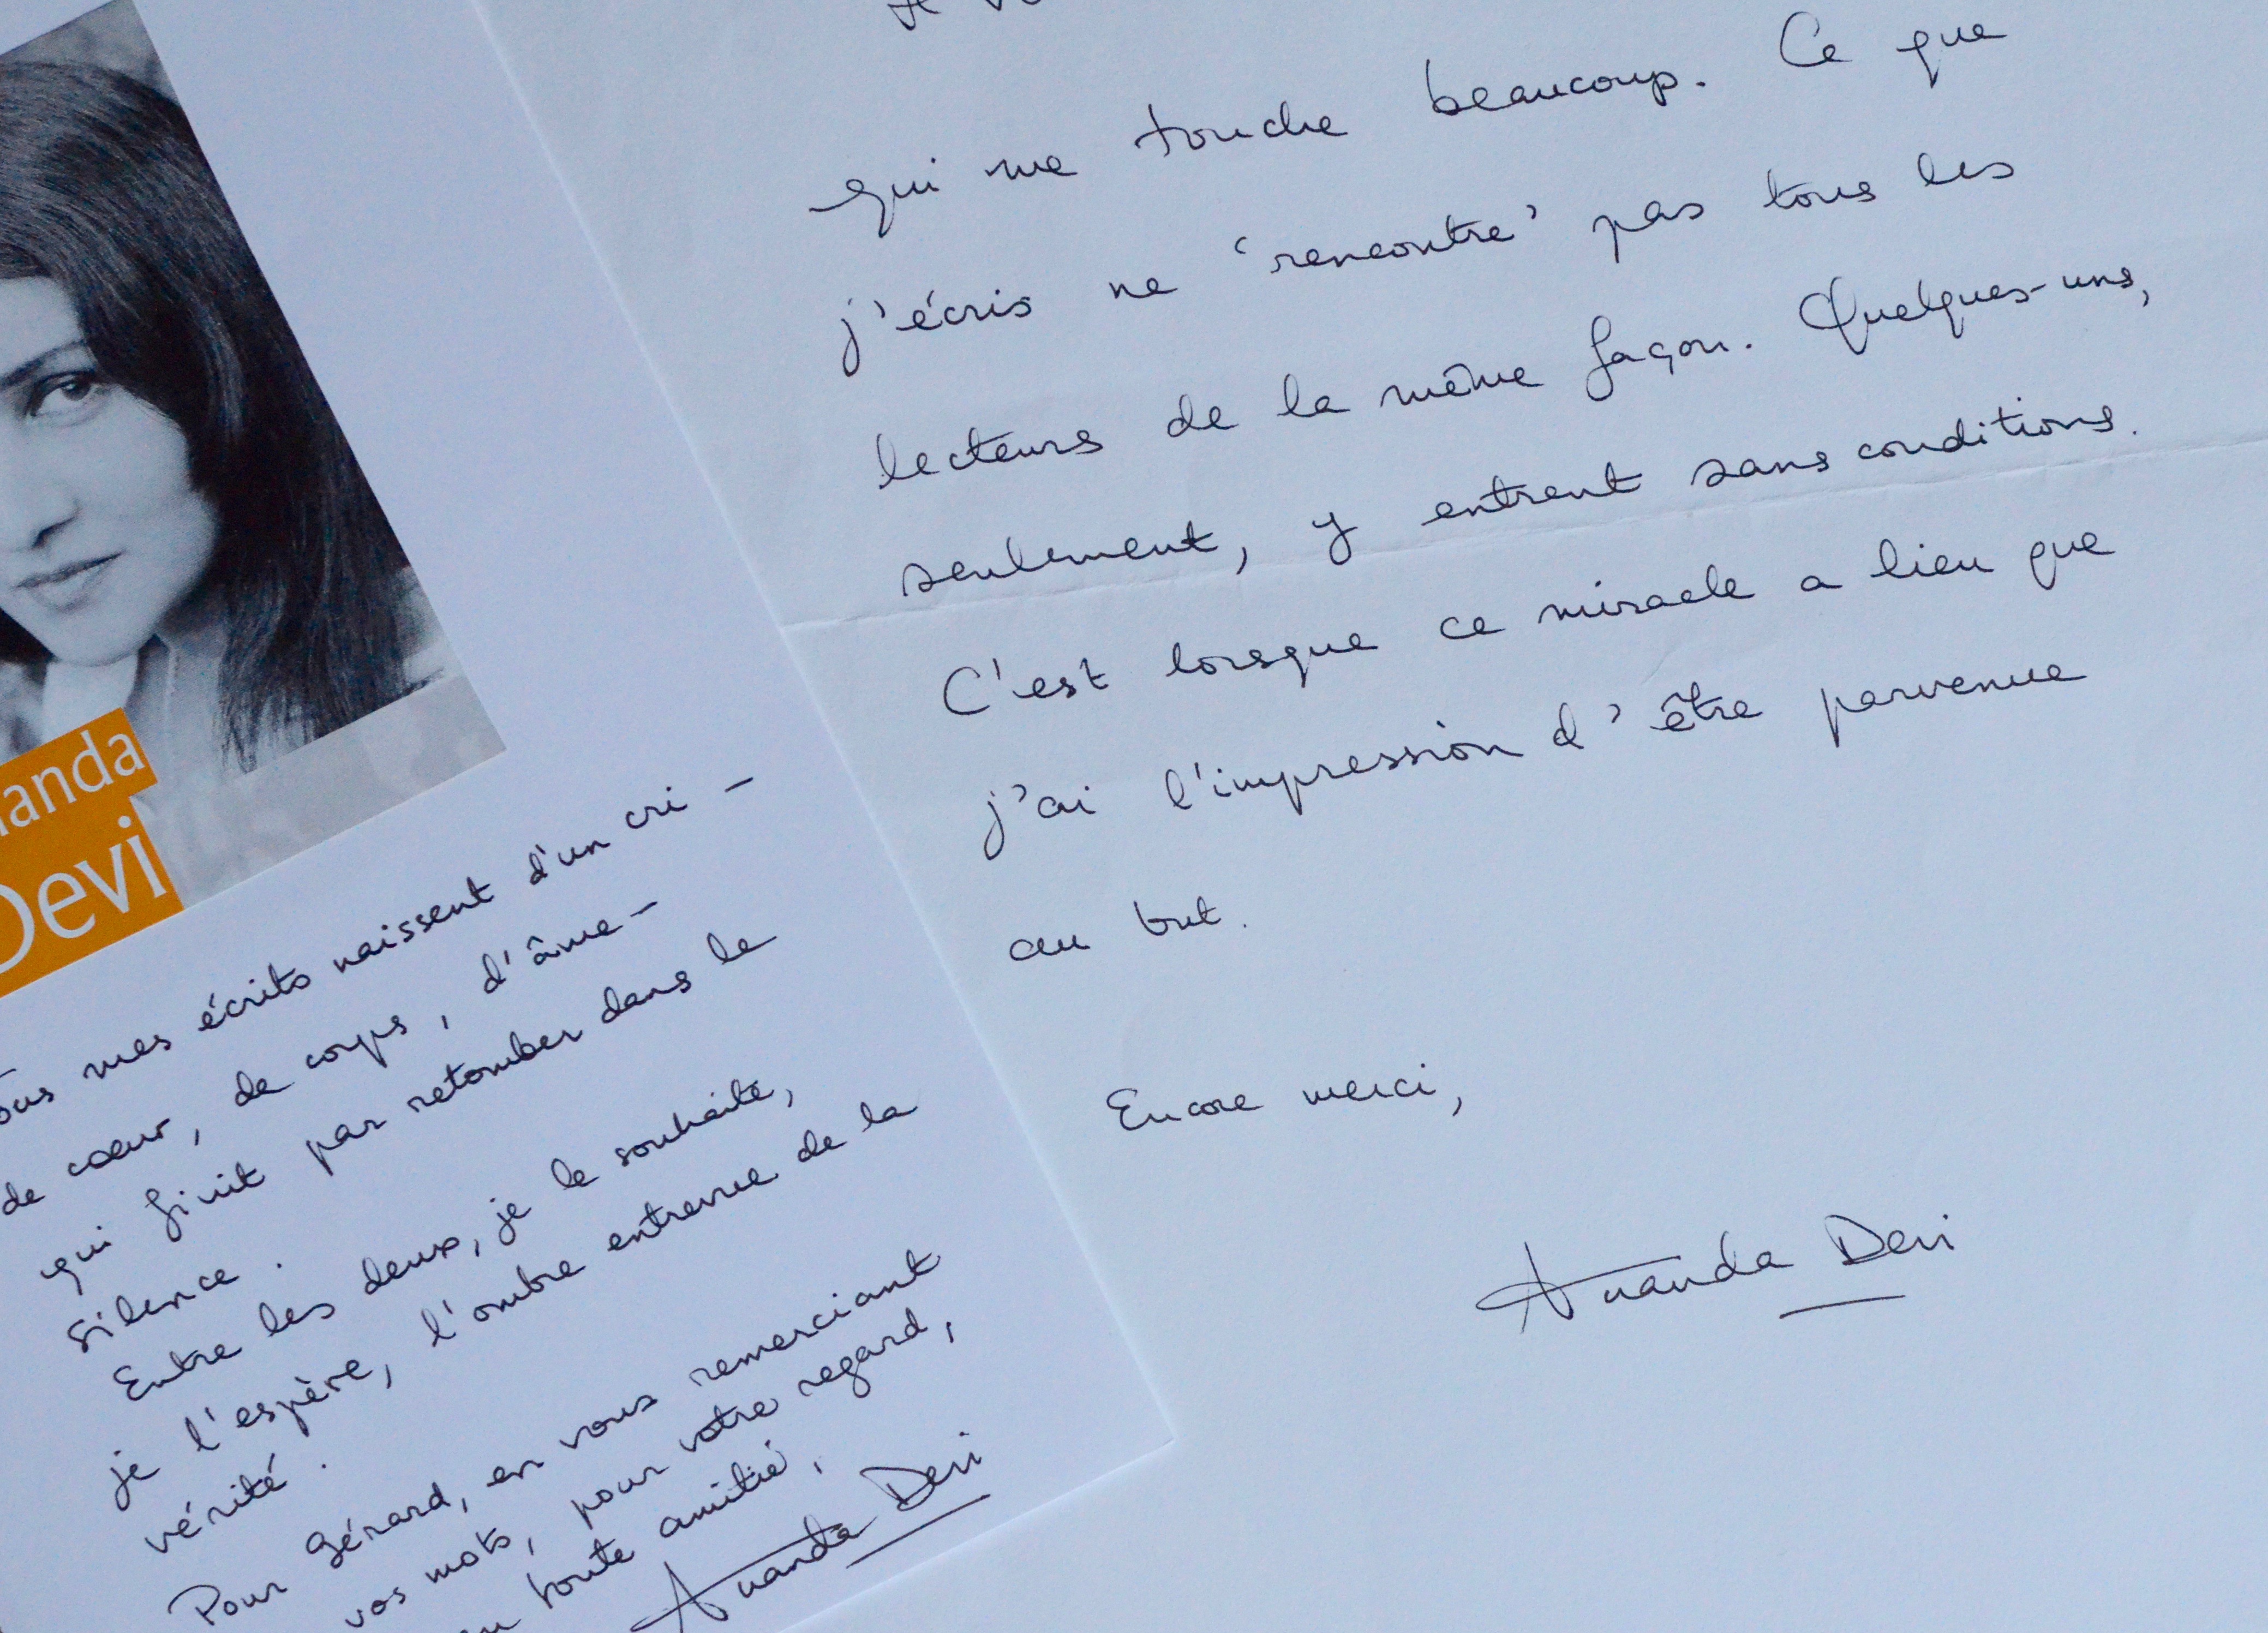 anda
Devi
Tous mes écrits naissent d'un cri –
de cœur, de corps, d'âme –
qui finit par retomber dans le
silence.
Entre les deux, je le souhaite,
je l'espère, l'ombre entrevue de la
vérité.
Pour Gérard, en vous remerciant
vos mots, pour votre regard,
en toute amitié,
Ananda Devi
qui me touche beaucoup. Ce que
j'écris ne 'rencontre' pas tous les
lecteurs de la même façon. Quelques-uns,
seulement, y entrent sans conditions.
C'est lorsque ce miracle a lieu que
j'ai l'impression d'être parvenue
au but.
Encore merci,
Ananda Devi